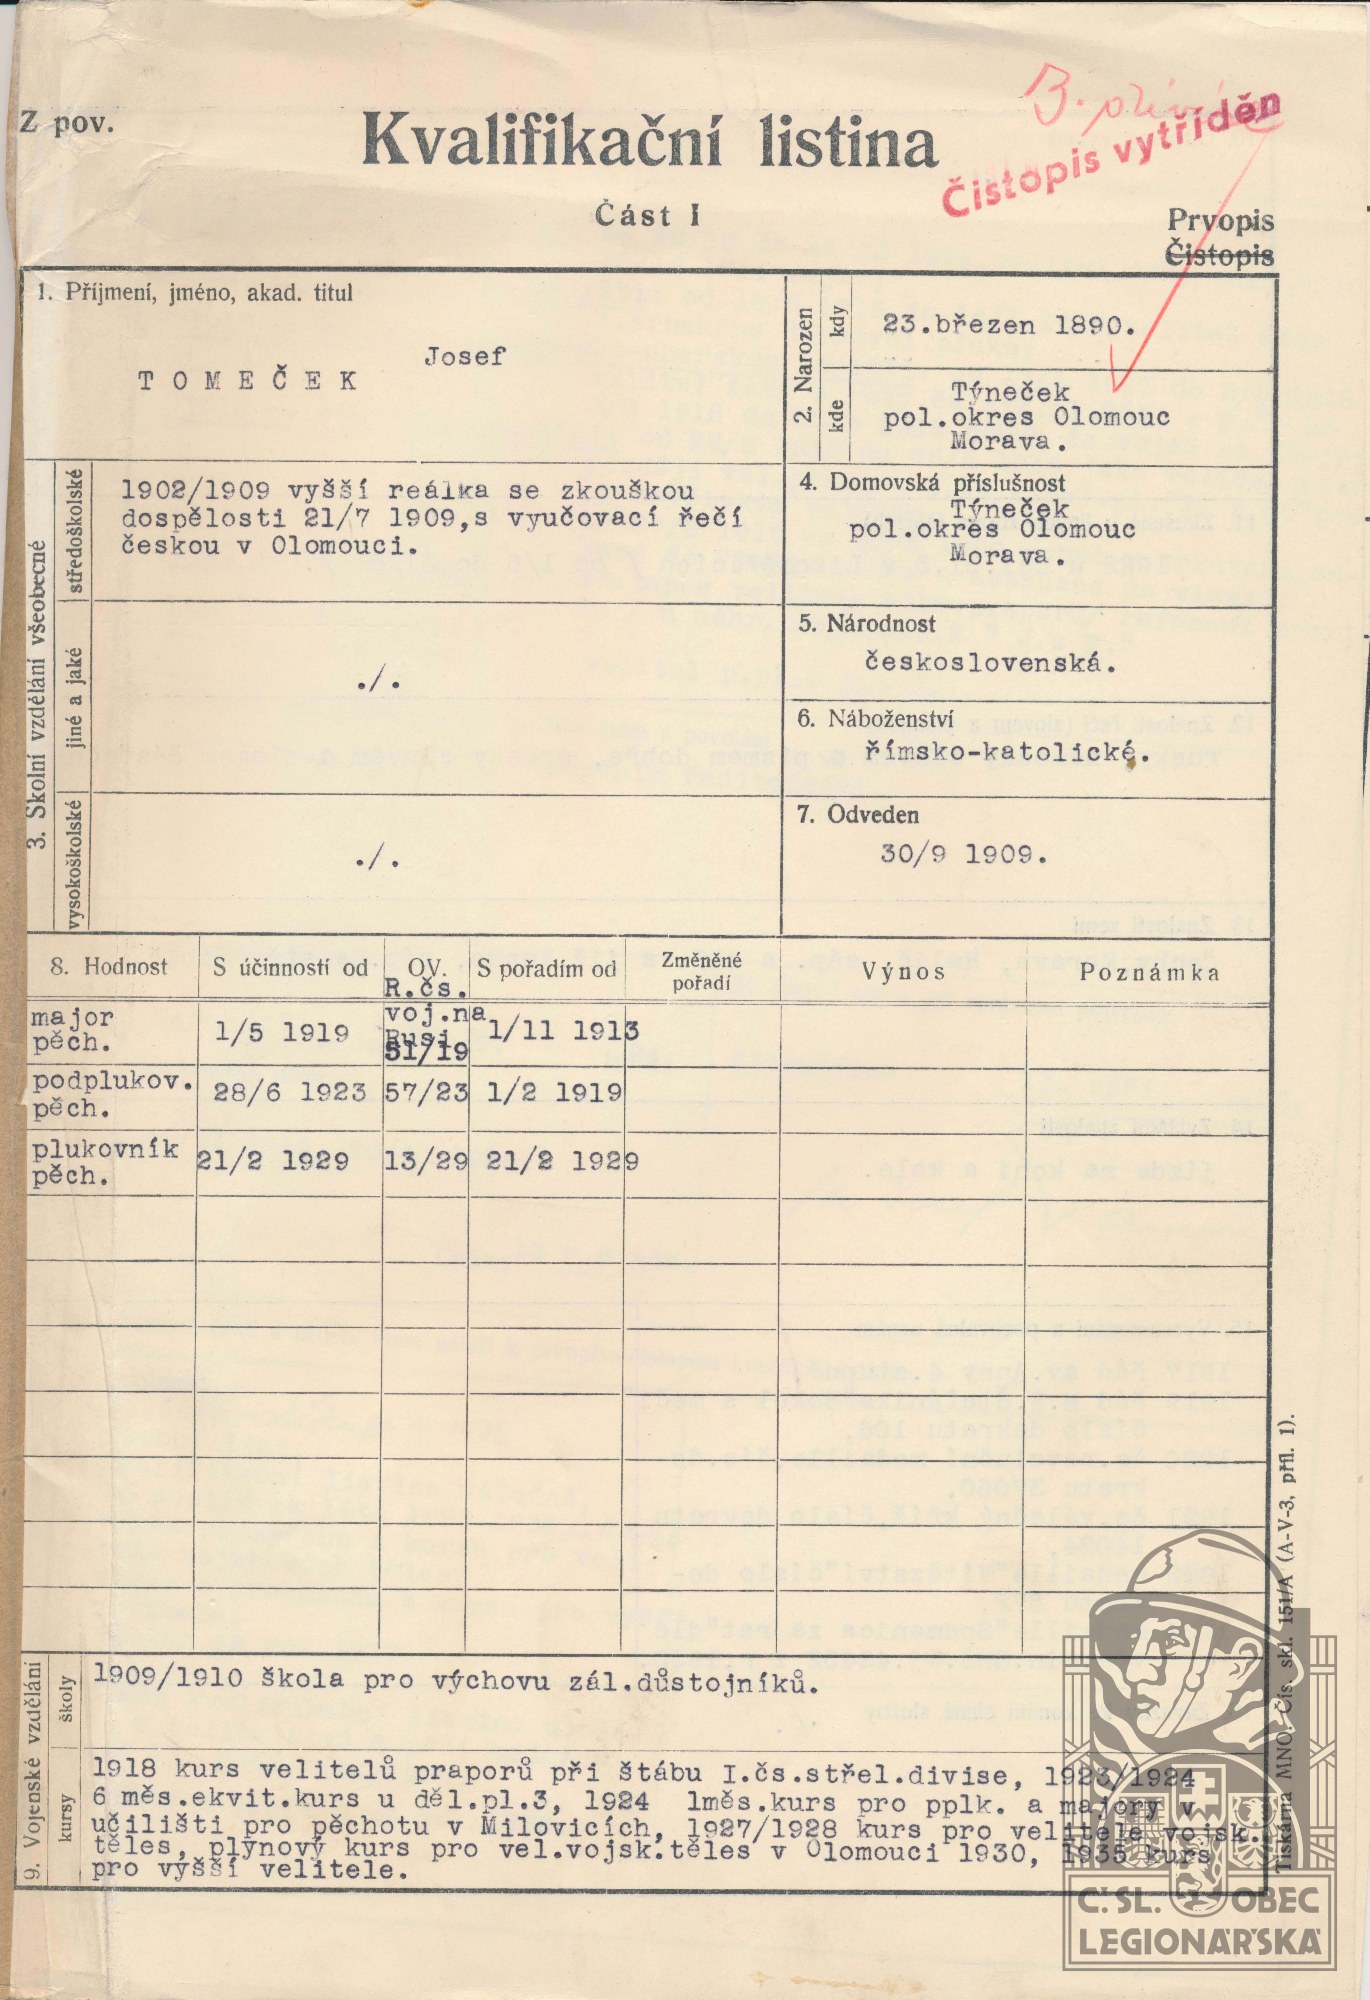 Z pov.
Kvalifikační listina
Část I
B.
Čistopis vytříděn
Prvopis
Čistopis
1. Příjmení, jméno, akad. titul
Josef
TOMEČEK
2. Narozen
kdy
23.březen 1890.
kde
Týneček
pol.okres Olomouc
Morava.
3. Školní vzdělání všeobecné
středoškolské
1902/1909 vyšší reálka se zkouškou
dospělosti 21/7 1909,s vyučovací řečí
českou v Olomouci.
jiné a jaké
./.
vysokoškolské
./.
4. Domovská příslušnost
Týneček
pol.okres Olomouc
Morava.
5. Národnost
československá.
6. Náboženství
římsko-katolické.
7. Odveden
30/9 1909.
8. Hodnost S účinností od OV. S pořadím od Změněné pořadí Výnos Poznámka
major pěch. 1/5 1919 R.čs. voj.na Rusi 51/19 1/11 1913
podplukov. pěch. 28/6 1923 57/23 1/2 1919
plukovník pěch. 21/2 1929 13/29 21/2 1929
9. Vojenské vzdělání
školy
1909/1910 škola pro výchovu zál.důstojníků.
kursy
1918 kurs velitelů praporů při štábu I.čs.střel.divise, 1923/1924
6 měs.ekvit.kurs u děl.pl.3, 1924 1měs.kurs pro pplk. a majory v
učilišti pro pěchotu v Milovicích, 1927/1928 kurs pro velitele vojsk.
těles, plynový kurs pro vel.vojsk.těles v Olomouci 1930, 1935 kurs
pro vyšší velitele.
Tiskárna MNO. Čís. skl. 151/A (A-V-3, příl. 1).
Č. SL. OBEC
LEGIONÁŘSKÁ